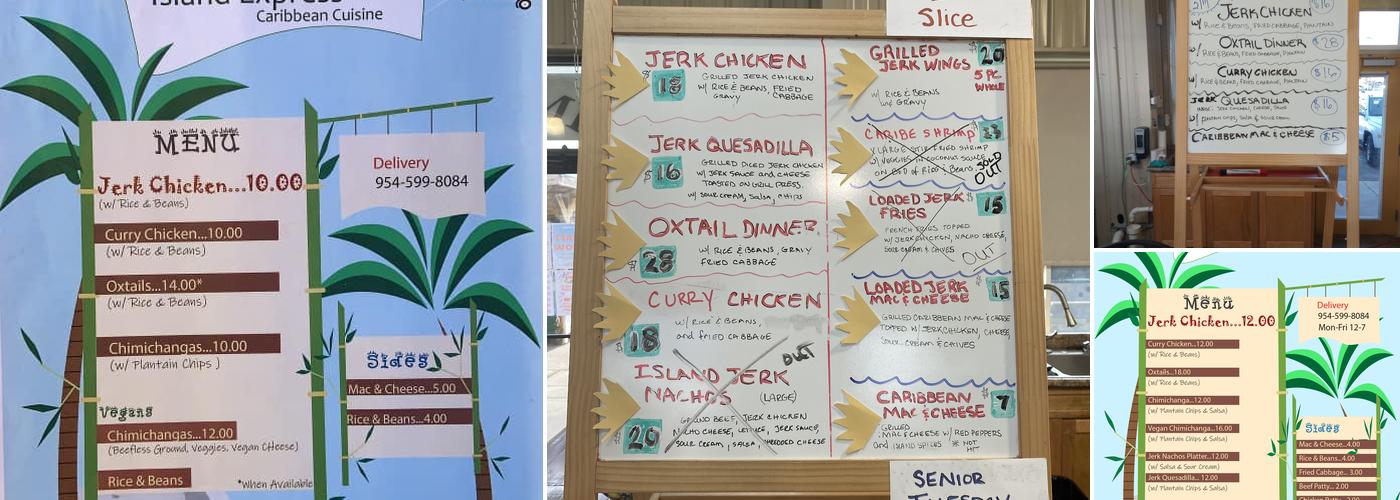 Island Express
Caribbean Cuisine
MENU
Jerk Chicken...10.00
(w/ Rice & Beans)
Curry Chicken...10.00
(w/ Rice & Beans)
Oxtails...14.00*
(w/ Rice & Beans)
Chimichangas...10.00
(w/ Plantain Chips )
Vegans
Chimichangas...12.00
(Beefless Ground, Veggies, Vegan CHeese)
Rice & Beans
*When Available
Delivery
954-599-8084
Sides
Mac & Cheese...5.00
Rice & Beans...4.00
Slice
JERK CHICKEN
$18
GRILLED JERK CHICKEN
w/ RICE & BEANS, FRIED
GRAVY CABBAGE
JERK QUESADILLA
$16
GRILLED DICED JERK CHICKEN
w/ JERK SAUCE and CHEESE
TOASTED ON GRILL PRESS.
w/ SOUR CREAM, SALSA, CHIPS
OXTAIL DINNER
$28
w/ RICE & BEANS, GRAVY
FRIED CABBAGE
CURRY CHICKEN
$18
w/ RICE & BEANS,
and FRIED CABBAGE
ISLAND JERK
NACHOS (LARGE)
OUT
$20
GROUND BEEF, JERK CHICKEN
NACHO CHEESE, LETTUCE, JERK SAUCE,
SOUR CREAM, SALSA, SHREDDED CHEESE
GRILLED
JERK WINGS
$20
5 PC
WHOLE
w/ RICE & BEANS
GRAVY
CARIBE SHRIMP
X LARGE STIR FRIED SHRIMP
w/ VEGGIES IN COCONUT SAUCE
ON BED OF RICE & BEANS
SOLD
OUT
LOADED JERK
FRIES
$15
FRENCH FRIES TOPPED
w/ JERK CHICKEN, NACHO CHEESE,
SOUR CREAM & CHIVES
OUT
LOADED JERK
MAC & CHEESE
$15
GRILLED CARIBBEAN MAC & CHEESE
TOPPED w/ JERK CHICKEN, CHEESE,
SOUR CREAM & CHIVES
CARIBBEAN
MAC & CHEESE
$7
GRILLED
MAC & CHEESE w/ RED PEPPERS
and ISLAND SPICES * NOT
HOT
SENIOR
TUESDAY
JERK CHICKEN
$16
w/ RICE & BEANS, FRIED CABBAGE, PLANTAIN
OXTAIL DINNER
$28
w/ RICE & BEANS, FRIED CABBAGE, PLANTAIN
CURRY CHICKEN
$16
w/ RICE & BEANS, FRIED CABBAGE, PLANTAIN
JERK QUESADILLA
$16
w/ PLANTAIN CHIPS, SALSA & SOUR CREAM
CARIBBEAN MAC & CHEESE
$5
Menu
Jerk Chicken...12.00
Curry Chicken...12.00
(w/ Rice & Beans)
Oxtails...18.00
(w/ Rice & Beans)
Chimichanga...12.00
(w/ Plantain Chips & Salsa)
Vegan Chimichanga...16.00
(w/ Plantain Chips & Salsa)
Jerk Nachos Platter...12.00
(w/ Salsa & Sour Cream)
Jerk Quesadilla...12.00
(w/ Plantain Chips & Salsa)
Delivery
954-599-8084
Mon-Fri 12-7
Sides
Mac & Cheese...4.00
Rice & Beans...4.00
Fried Cabbage... 3.00
Beef Patty... 2.00